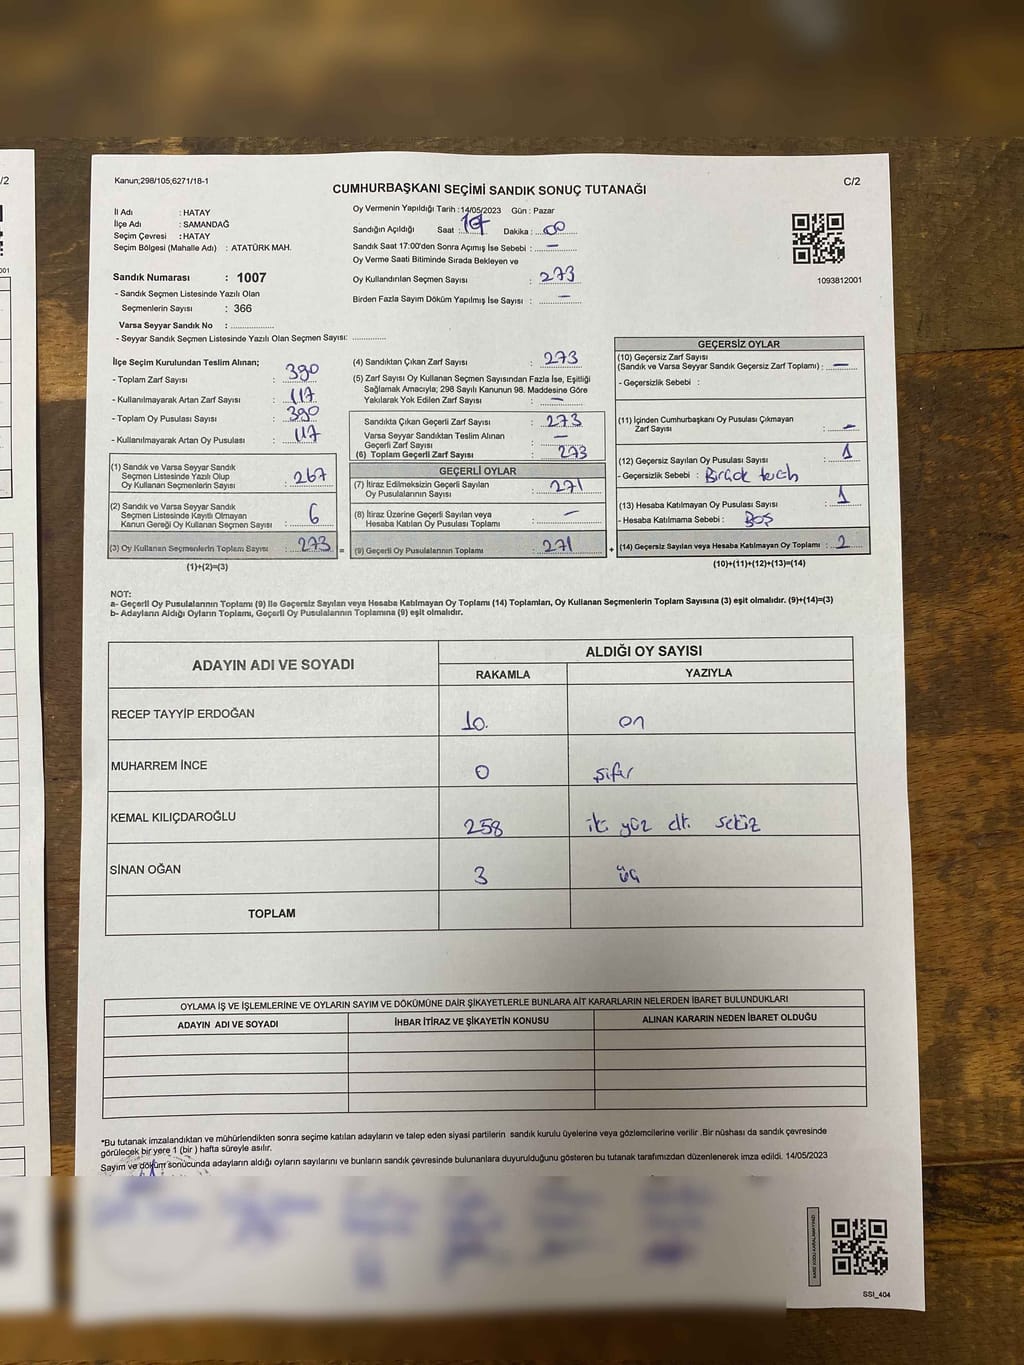 /2
001
Kanun;298/105;6271/18-1
C/2
CUMHURBAŞKANI SEÇİMİ SANDIK SONUÇ TUTANAĞI
İl Adı : HATAY
İlçe Adı : SAMANDAĞ
Seçim Çevresi : HATAY
Seçim Bölgesi (Mahalle Adı) : ATATÜRK MAH.
Sandık Numarası : 1007
- Sandık Seçmen Listesinde Yazılı Olan
Seçmenlerin Sayısı : 366
Varsa Seyyar Sandık No : ..............
- Seyyar Sandık Seçmen Listesinde Yazılı Olan Seçmen Sayısı: ..............
Oy Vermenin Yapıldığı Tarih :14/05/2023 Gün : Pazar
Sandığın Açıldığı Saat : 17 Dakika : 00
Sandık Saat 17:00'den Sonra Açımış İse Sebebi : —
Oy Verme Saati Bitiminde Sırada Bekleyen ve
Oy Kullandırılan Seçmen Sayısı : 273
Birden Fazla Sayım Döküm Yapılmış İse Sayısı : —
1093812001
İlçe Seçim Kurulundan Teslim Alınan;
- Toplam Zarf Sayısı : 390
- Kullanılmayarak Artan Zarf Sayısı : 117
- Toplam Oy Pusulası Sayısı : 390
- Kullanılmayarak Artan Oy Pusulası : 117
(1) Sandık ve Varsa Seyyar Sandık
Seçmen Listesinde Yazılı Olup
Oy Kullanan Seçmenlerin Sayısı : 267
(2) Sandık ve Varsa Seyyar Sandık
Seçmen Listesinde Kayıtlı Olmayan
Kanun Gereği Oy Kullanan Seçmen Sayısı : 6
(3) Oy Kullanan Seçmenlerin Toplam Sayısı : 273 =
(1)+(2)=(3)
(4) Sandıktan Çıkan Zarf Sayısı : 273
(5) Zarf Sayısı Oy Kullanan Seçmen Sayısından Fazla İse, Eşitliği
Sağlamak Amacıyla; 298 Sayılı Kanunun 98. Maddesine Göre
Yakılarak Yok Edilen Zarf Sayısı : —
Sandıkta Çıkan Geçerli Zarf Sayısı : 273
Varsa Seyyar Sandıktan Teslim Alınan
Geçerli Zarf Sayısı : —
(6) Toplam Geçerli Zarf Sayısı : 273
GEÇERLİ OYLAR
(7) İtiraz Edilmeksizin Geçerli Sayılan
Oy Pusulalarının Sayısı : 271
(8) İtiraz Üzerine Geçerli Sayılan veya
Hesaba Katılan Oy Pusulası Toplamı : —
(9) Geçerli Oy Pusulalarının Toplamı : 271 +
GEÇERSİZ OYLAR
(10) Geçersiz Zarf Sayısı
(Sandık ve Varsa Seyyar Sandık Geçersiz Zarf Toplamı) : —
- Geçersizlik Sebebi :
(11) İçinden Cumhurbaşkanı Oy Pusulası Çıkmayan
Zarf Sayısı : —
(12) Geçersiz Sayılan Oy Pusulası Sayısı : 1
- Geçersizlik Sebebi : Birçok tercih
(13) Hesaba Katılmayan Oy Pusulası Sayısı : 1
- Hesaba Katılmama Sebebi : BOŞ
(14) Geçersiz Sayılan veya Hesaba Katılmayan Oy Toplamı : 2
(10)+(11)+(12)+(13)=(14)
NOT:
a- Geçerli Oy Pusulalarının Toplamı (9) ile Geçersiz Sayılan veya Hesaba Katılmayan Oy Toplamı (14) Toplamları, Oy Kullanan Seçmenlerin Toplam Sayısına (3) eşit olmalıdır. (9)+(14)=(3)
b- Adayların Aldığı Oyların Toplamı, Geçerli Oy Pusulalarının Toplamına (9) eşit olmalıdır.
ADAYIN ADI VE SOYADI ALDIĞI OY SAYISI
RAKAMLA YAZIYLA
RECEP TAYYİP ERDOĞAN 10. on
MUHARREM İNCE 0 sıfır
KEMAL KILIÇDAROĞLU 258 iki yüz elli sekiz
SİNAN OĞAN 3 üç
TOPLAM
OYLAMA İŞ VE İŞLEMLERİNE VE OYLARIN SAYIM VE DÖKÜMÜNE DAİR ŞİKAYETLERLE BUNLARA AİT KARARLARIN NELERDEN İBARET BULUNDUKLARI
ADAYIN ADI VE SOYADI İHBAR İTİRAZ VE ŞİKAYETİN KONUSU ALINAN KARARIN NEDEN İBARET OLDUĞU
*Bu tutanak imzalandıktan ve mühürlendikten sonra seçime katılan adayların ve talep eden siyasi partilerin sandık kurulu üyelerine veya gözlemcilerine verilir .Bir nüshası da sandık çevresinde
görülecek bir yere 1 (bir ) hafta süreyle asılır.
Sayım ve döküm sonucunda adayların aldığı oyların sayılarını ve bunların sandık çevresinde bulunanlara duyurulduğunu gösteren bu tutanak tarafımızdan düzenlenerek imza edildi. 14/05/2023
SSI_404